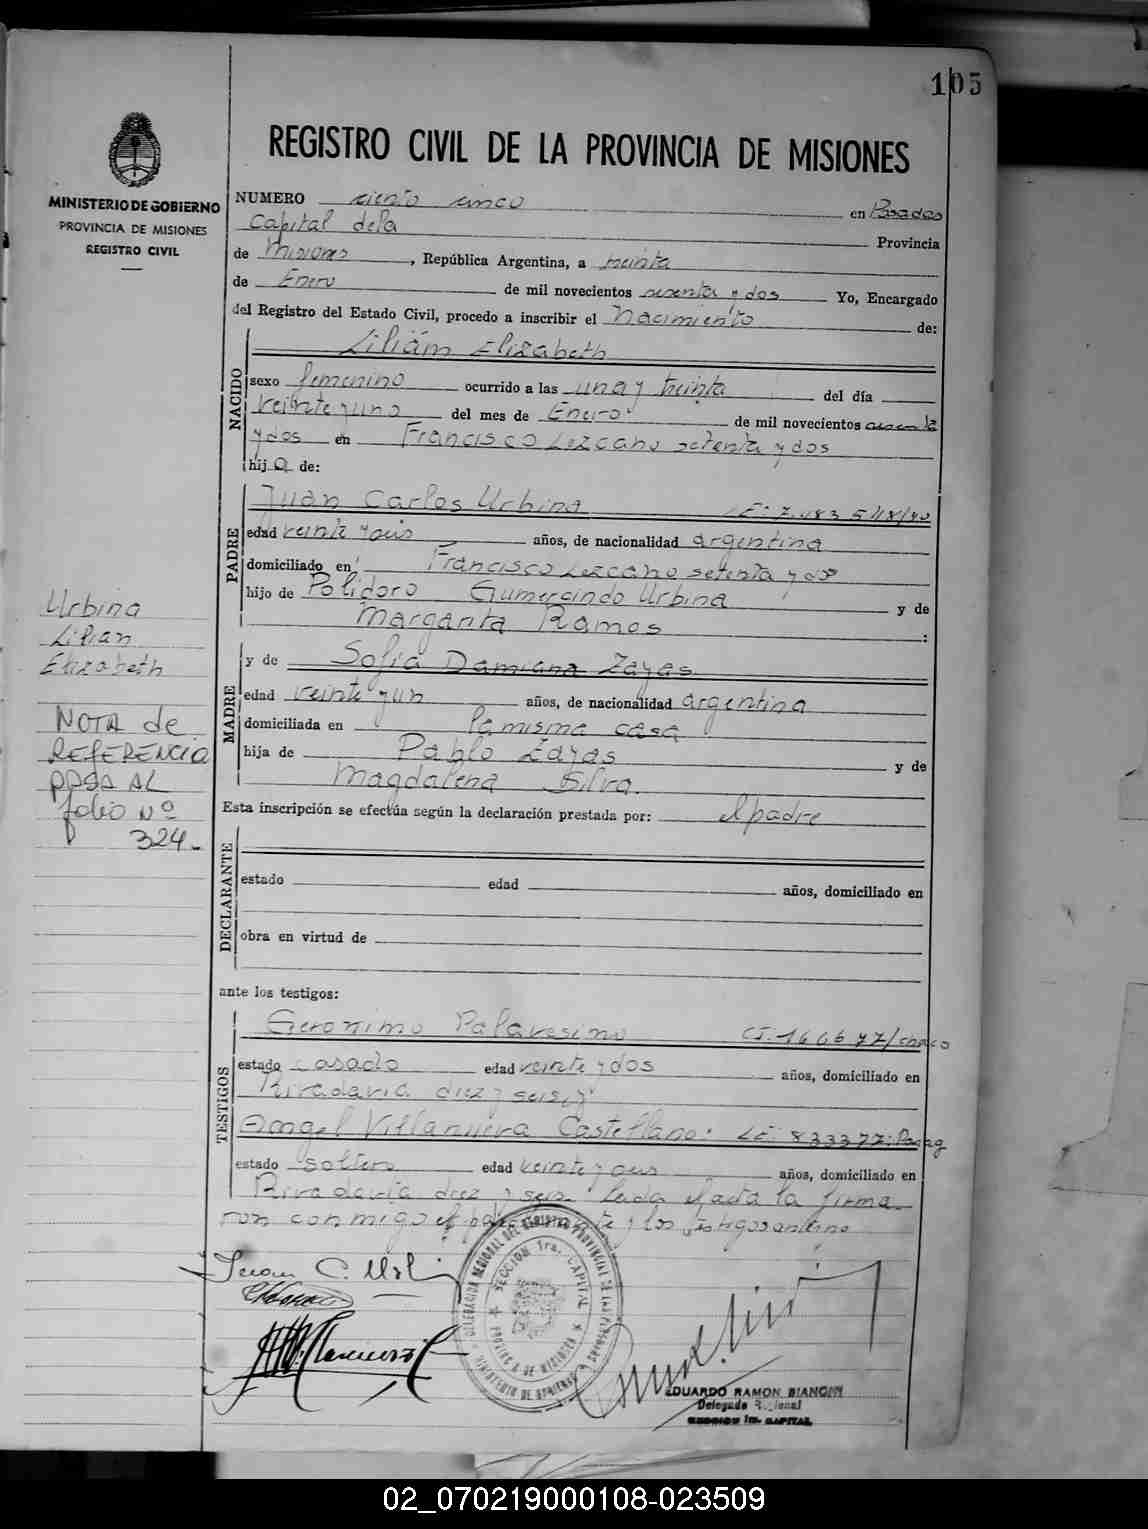 105
REGISTRO CIVIL DE LA PROVINCIA DE MISIONES
MINISTERIO DE GOBIERNO
PROVINCIA DE MISIONES
REGISTRO CIVIL
NUMERO ciento cinco en Posadas
Capital dela Provincia
de Misiones, República Argentina, a treinta
de Enero de mil novecientos sesenta y dos Yo, Encargado
del Registro del Estado Civil, procedo a inscribir el Nacimiento de:
NACIDO
Lilián Elizabeth
sexo femenino ocurrido a las una y treinta del día
veinte y uno del mes de Enero de mil novecientos
y dos en Francisco Lezcano setenta y dos
hija de:
PADRE
Juan Carlos Urbina
edad años, de nacionalidad argentina
domiciliado en Francisco Lezcano setenta y dos
hijo de Polidoro Gumercindo Urbina y de
Margarita Ramos :
Urbina
Lilian
Elizabeth
NOTA de
REFERENCIA
PASA AL
folio Nº
324.-
MADRE
y de Sofia Damiana Zayas
edad veinte y un años, de nacionalidad argentina
domiciliada en la misma casa
hija de Pablo Zayas y de
Magdalena Silva.
Esta inscripción se efectúa según la declaración prestada por: el padre
DECLARANTE
estado edad años, domiciliado en
obra en virtud de
ante los testigos:
TESTIGOS
Geronimo Palavesino
estado casado edad veinte y dos años, domiciliado en
Rivadavia diez y seis y
Angel Villanueva Castellano:
estado soltero edad años, domiciliado en
Rivadavia diez y seis leida el acta la firma
ron conmigo el y los testigos
Juan C. Urbina
DELEGACION REGIONAL DEL REGISTRO PROVINCIAL DE LAS PERSONAS
SECCION 1ra. CAPITAL
PROVINCIA DE MISIONES
MINISTERIO DE GOBIERNO
EDUARDO RAMON BIANCHI
Delegado Regional
SECCION 1ra. CAPITAL
02_070219000108-023509